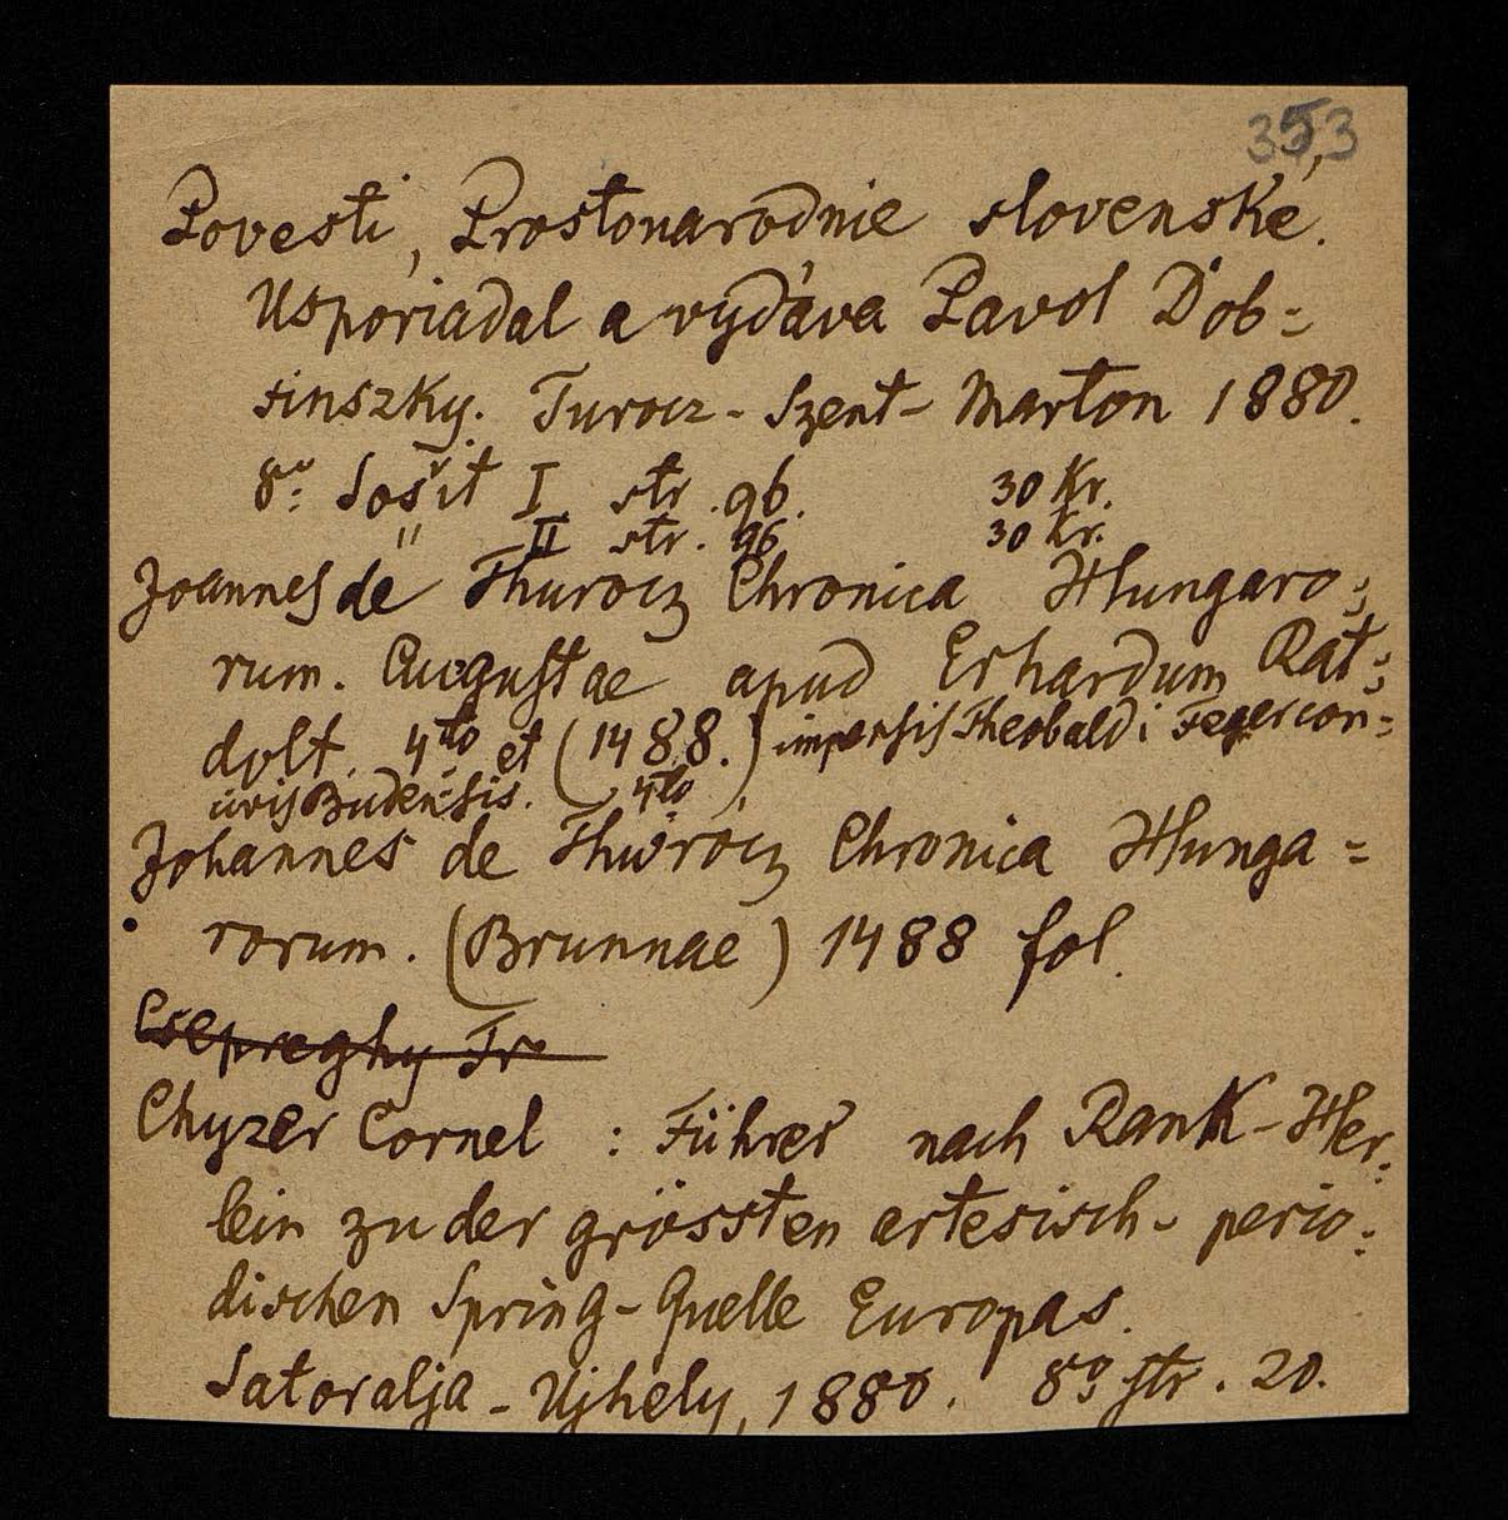 353
Povesti, Prostonarodnie slovenské.
Usporiadal a vydáva Pavol Dob=
sinszky. Turocz-Szent-Marton 1880.
8º Sošit I str. 96. 30 Kr.
" II str. 96 30 Kr.
Joannes de Thurocz Chronica Hungaro=
rum. Augustae apud Erhardum Rat=
dolt. 4to et (1488.) impensis Theobaldi Feger con=
civis Budensis. 4to
Johannes de Thwrócz Chronica Hunga=
rorum. (Brunnae) 1488 fol.
Csepreghy Fr
Chyzer Cornel : Führer nach Rank-Her=
lein zu der grössten artesisch- perio=
dischen Spring-Quelle Europas.
Satoralja-Ujhely, 1880. 8º str. 20.